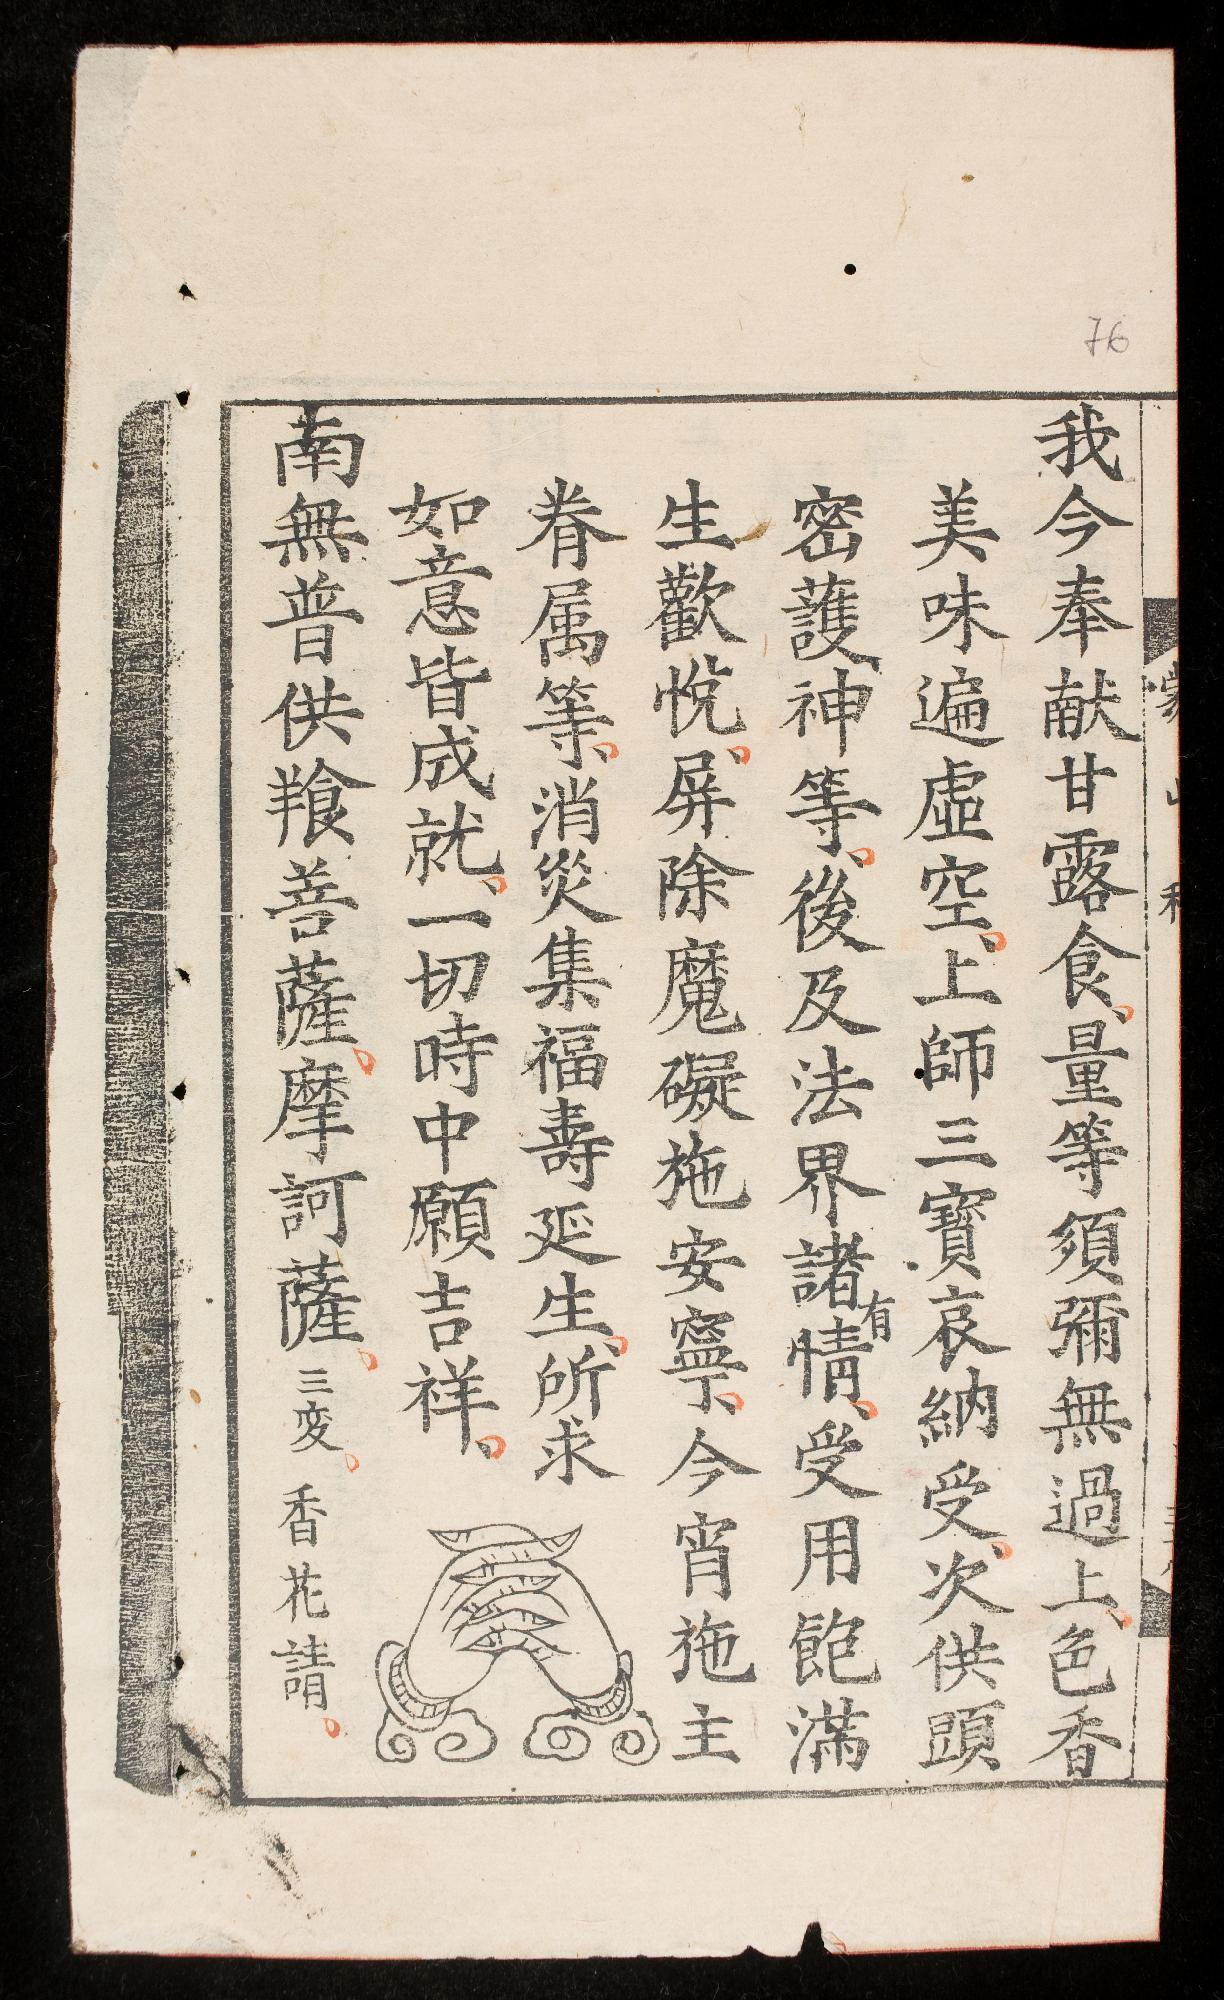 76
我今奉献甘露食、量等須彌無過上、色香
美味遍虛空、上師三寶哀納受、次供頭
密護神等、後及法界諸有情、受用飽滿
生歡悅、屏除魔礙施安寧、今宵施主
眷属等、消災集福壽延生、所求
如意皆成就、一切時中願吉祥、
南無普供飡菩薩、摩訶薩、三变、香花請